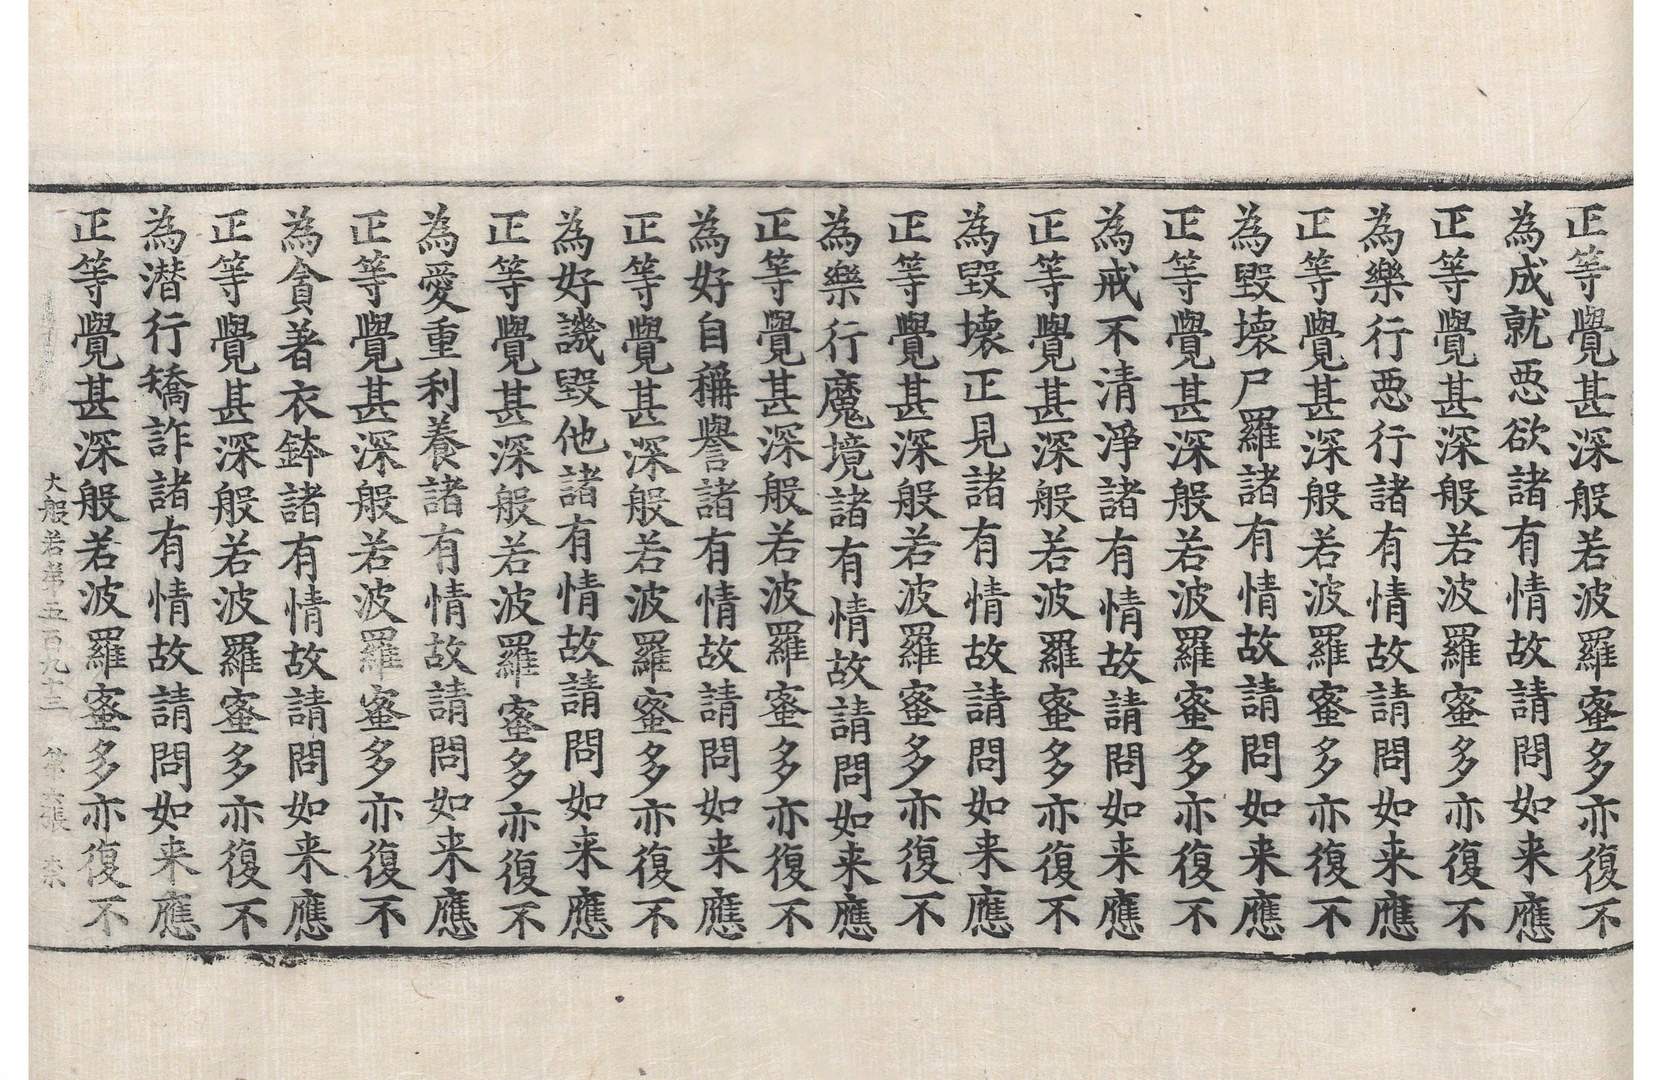 正等覺甚深般若波羅蜜多亦復不
為成就惡欲諸有情故請問如来應
正等覺甚深般若波羅蜜多亦復不
為樂行惡行諸有情故請問如来應
正等覺甚深般若波羅蜜多亦復不
為毀壞尸羅諸有情故請問如来應
正等覺甚深般若波羅蜜多亦復不
為戒不清淨諸有情故請問如来應
正等覺甚深般若波羅蜜多亦復不
為毀壞正見諸有情故請問如来應
正等覺甚深般若波羅蜜多亦復不
為樂行魔境諸有情故請問如来應
正等覺甚深般若波羅蜜多亦復不
為好自稱譽諸有情故請問如来應
正等覺甚深般若波羅蜜多亦復不
為好譏毀他諸有情故請問如来應
正等覺甚深般若波羅蜜多亦復不
為愛重利養諸有情故請問如来應
正等覺甚深般若波羅蜜多亦復不
為貪著衣鉢諸有情故請問如来應
正等覺甚深般若波羅蜜多亦復不
為潜行矯詐諸有情故請問如来應
正等覺甚深般若波羅蜜多亦復不
大般若第五百九十三 第六張 柰